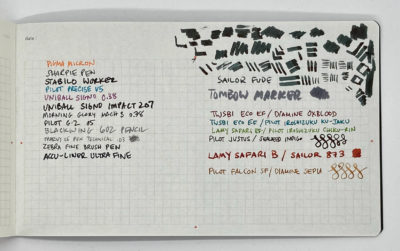 PIGMA MICRON
SHARPIE PEN
STABILO WORKER
PILOT PRECISE V5
UNIBALL SIGNO 0.38
UNIBALL SIGNO IMPACT 207
MORNING GLORY MACH 3 0.38
PILOT G-2 05
BLACKWING 602 PENCIL
PEN TECHNICAL .05
ZEBRA FINE BRUSH PEN
ACCU-LINER ULTRA FINE
SAILOR FUDE
TOMBOW MARKER
TWSBI ECO EF / DIAMINE OXBLOOD
TWSBI ECO EF / PILOT IROSHIZUKU KU-JAKU
LAMY SAFARI EF / PILOT IROSHIZUKU CHIKU-RIN
PILOT JUSTUS / INDIGO
LAMY SAFARI B / SAILOR 873
PILOT FALCON SF / DIAMINE SEPIA